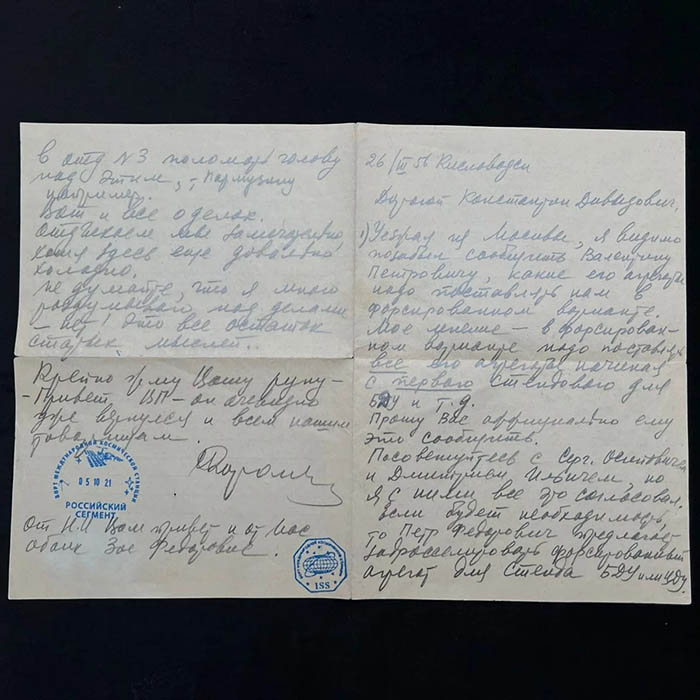 26/III 56 Кисловодск
Дорогой Константин Давидович,
1) Уезжая из Москвы, я видимо
позабыл сообщить Валентину
Петровичу, какие его агрегаты
надо поставлять нам в
форсированном варианте.
Мое мнение – в форсирован-
ном варианте надо поставлять
все его агрегаты начиная
с первого стендового для
БДУ и т.д.
Прошу Вас официально ему
это сообщить.
Посоветуйтесь с Серг. Осиповичем
и Дмитрием Ильичем, но
я с ними все это согласовал.
Если будет необходимость,
то Петр Федорович предлагает
задросселировать форсированный
агрегат для стенда БДУ или ЦДУ
в отд N3 поломать голову
над этим,
например.
Вот и все о делах.
Отдыхаем мы замечательно
хотя здесь еще довольно
холодно.
Не думайте, что я много
раздумываю над делами
– нет! Это все остаток
старых мыслей..
Крепко жму Вашу руку –
– Привет ВП – он очевидно
уже вернулся и всем нашим
товарищам.
БОРТ МЕЖДУНАРОДНОЙ КОСМИЧЕСКОЙ СТАНЦИИ
05 10 21
РОССИЙСКИЙ
СЕГМЕНТ
От Н.И Вам привет и от нас
обоих Зое Федоровне.
ISS